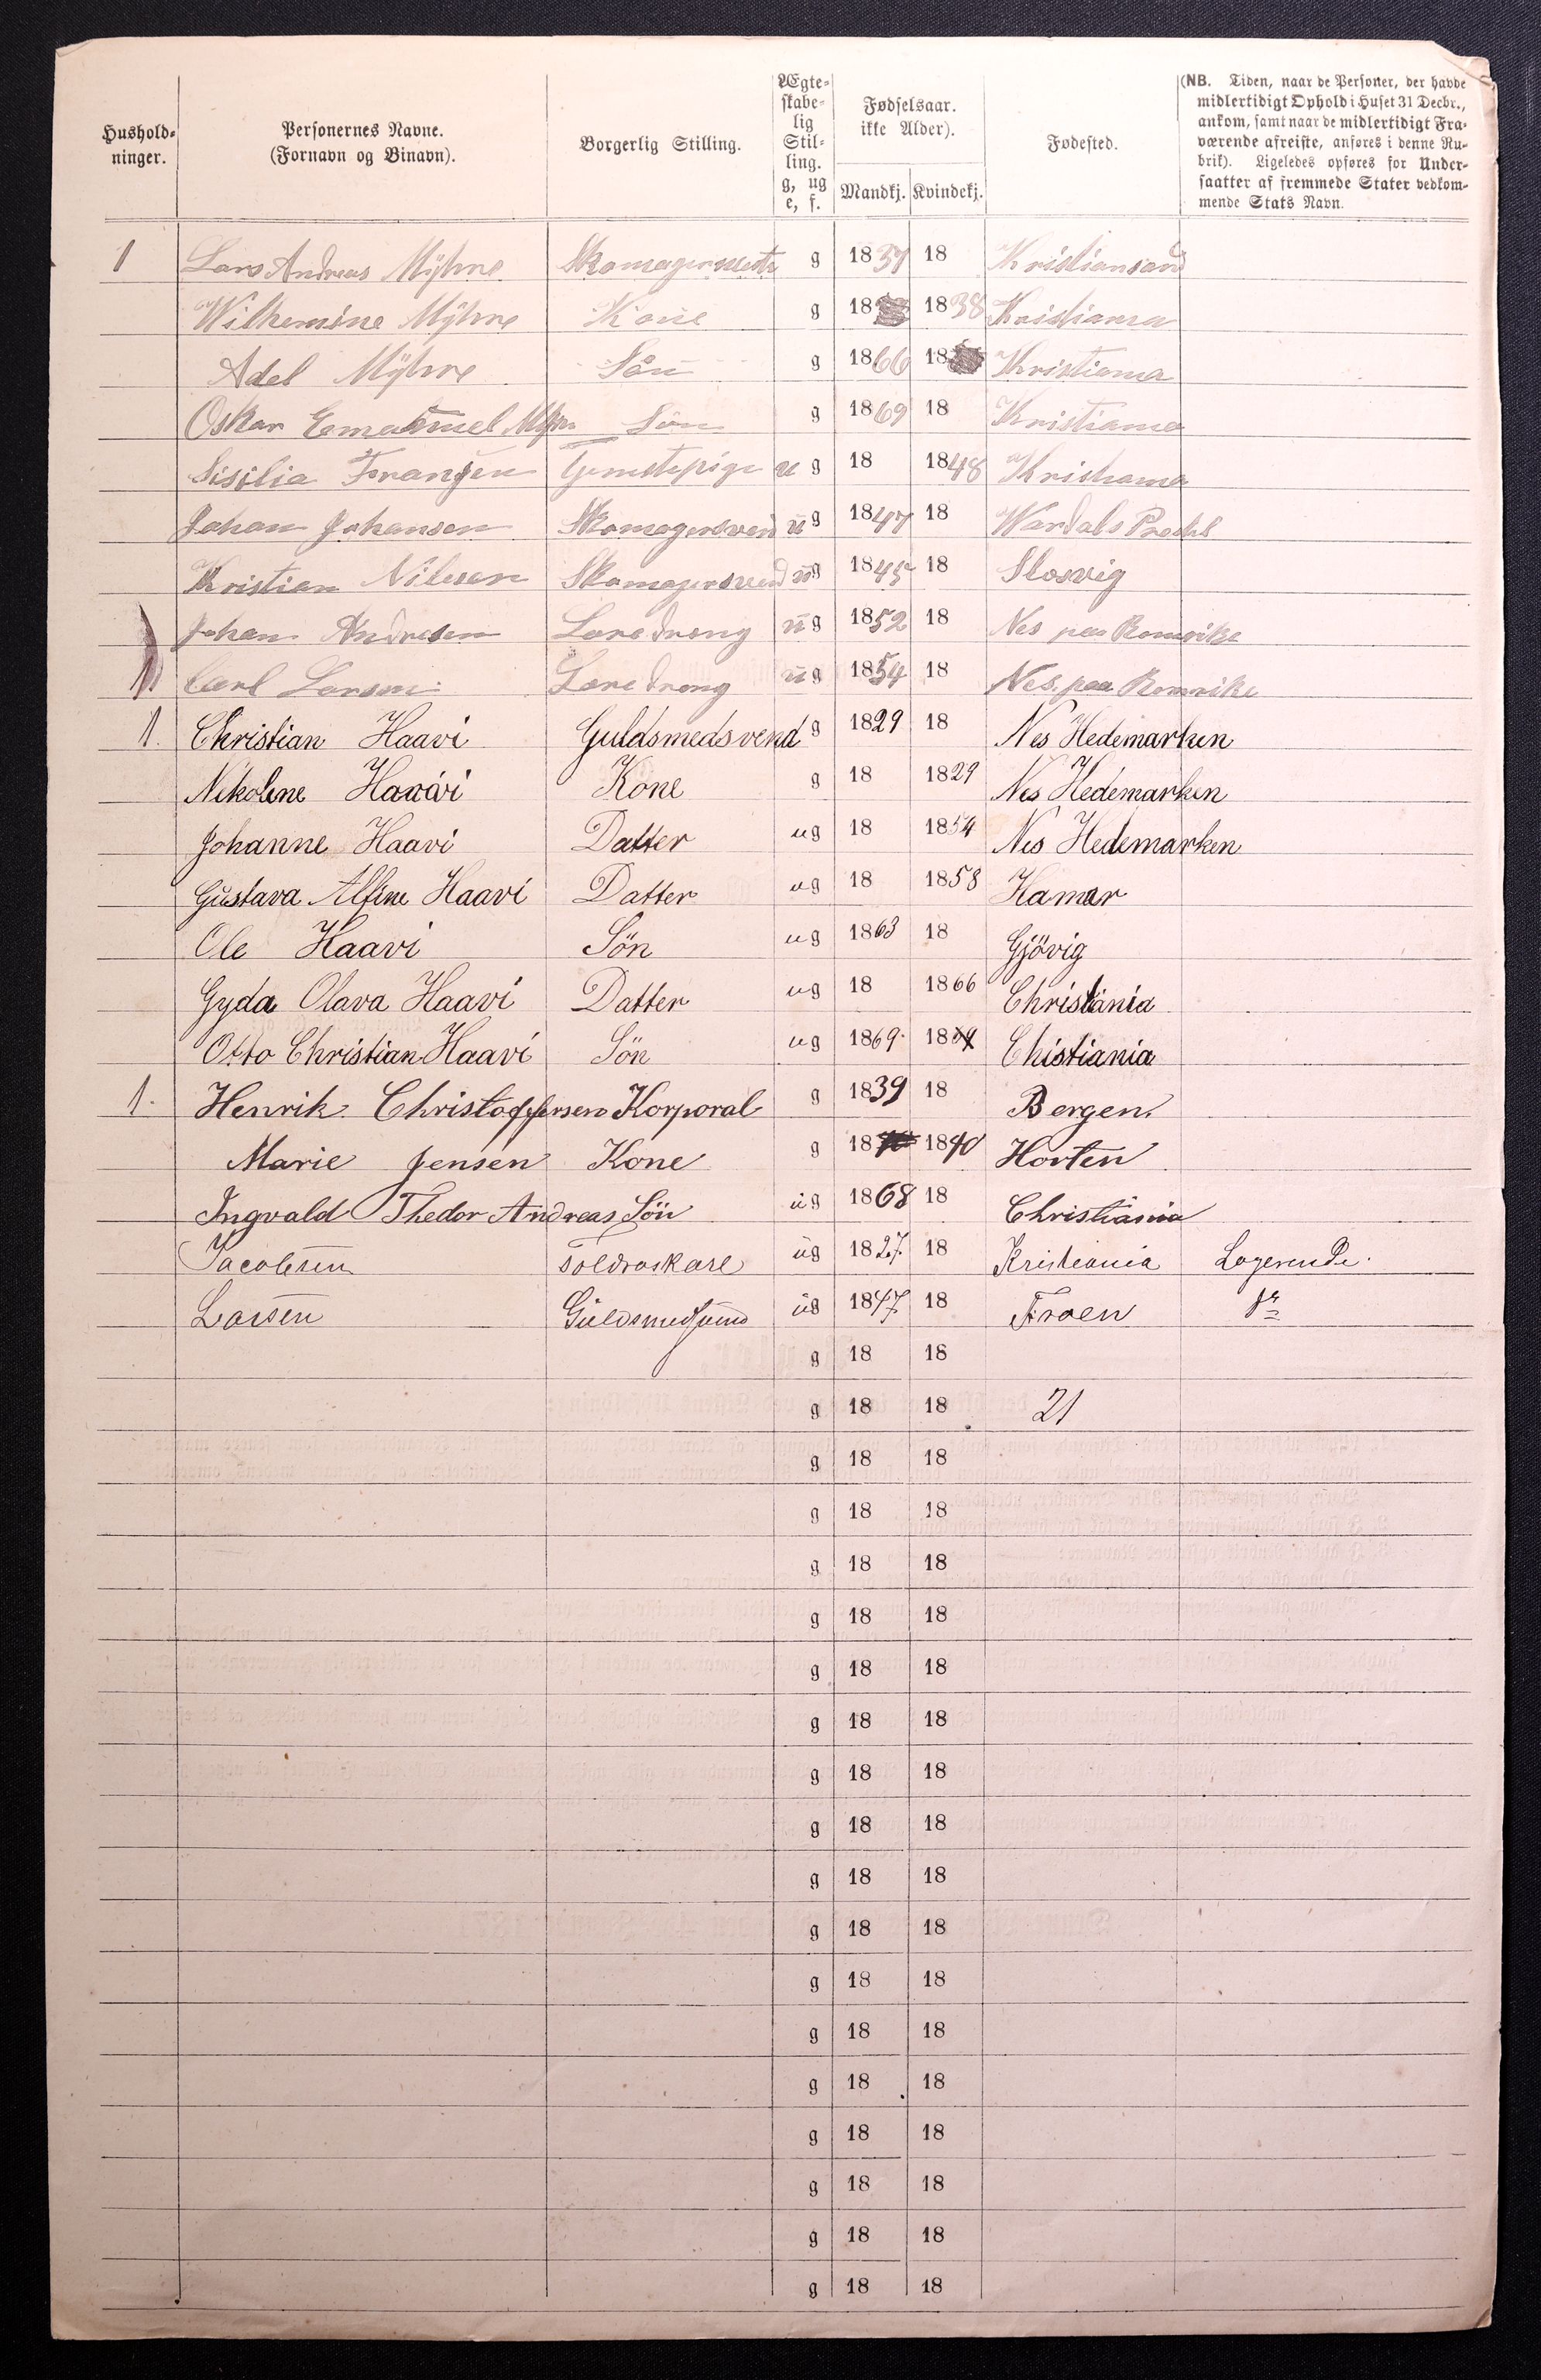 Hushold-
ninger.
Personernes Navne.
(Fornavn og Binavn).
Borgerlig Stilling.
Ægte-
skabe-
lig
Stil-
ling.
g, ug
e, f.
Fødselsaar.
ikke Alder).
Mandkj. Kvindekj.
Fødested.
(NB. Tiden, naar de Personer, der havde
midlertidigt Ophold i Huset 31 Decbr.,
ankom, samt naar de midlertidigt Fra-
værende afreiste, anføres i denne Ru-
brik). Ligeledes opføres for Under-
saatter af fremmede Stater vedkom-
mende Stats Navn.
1 Lars Andreas Mÿhre Skomagermester g 1837 18 Kristiansand
Wilhemine Mÿhre Kone g 18 1838 Kristiania
Adel Mÿhre Sön g 1866 18 Kristiania
Oskar Emanuel Mÿhre Sön g 1869 18 Kristiania
Sisilia Fransen Tjenstepige u g 18 1848 Kristiania
Johan Johansen Skomagersvend u g 1847 18 Wardals
Kristian Nilesen Skomagersvend u g 1845 18 Slesvig
Johan Andresen Læredreng u g 1852 18 Nes paa Romerike
1 Carl Larsen Læredreng u g 1854 18 Nes paa Romerike
1. Christian Haavi Guldsmedsvend g 1829 18 Nes Hedemarken
Nikoline Haavi Kone g 18 1829 Nes Hedemarken
Johanne Haavi Datter ug 18 1854 Nes Hedemarken
Gustava Alfine Haavi Datter ug 18 1858 Hamar
Ole Haavi Sön ug 1863 18 Gjövig
Gyda Olava Haavi Datter ug 18 1866 Christiania
Otto Christian Haavi Sön ug 1869 18 Chistiania
1. Henrik Christoffersen Korporal g 1839 18 Bergen.
Marie Jensen Kone g 18 1840 Horten
Ingvald Thedor Andreas Sön ug 1868 18 Christiania
Jacobsen Toldvaskarl ug 1827 18 Kristiania Logerende.
Larsen Guldsmedsvend ug 1847 18 Froen do
g 18 18
g 18 18 21
g 18 18
g 18 18
g 18 18
g 18 18
g 18 18
g 18 18
g 18 18
g 18 18
g 18 18
g 18 18
g 18 18
g 18 18
g 18 18
g 18 18
g 18 18
g 18 18
g 18 18